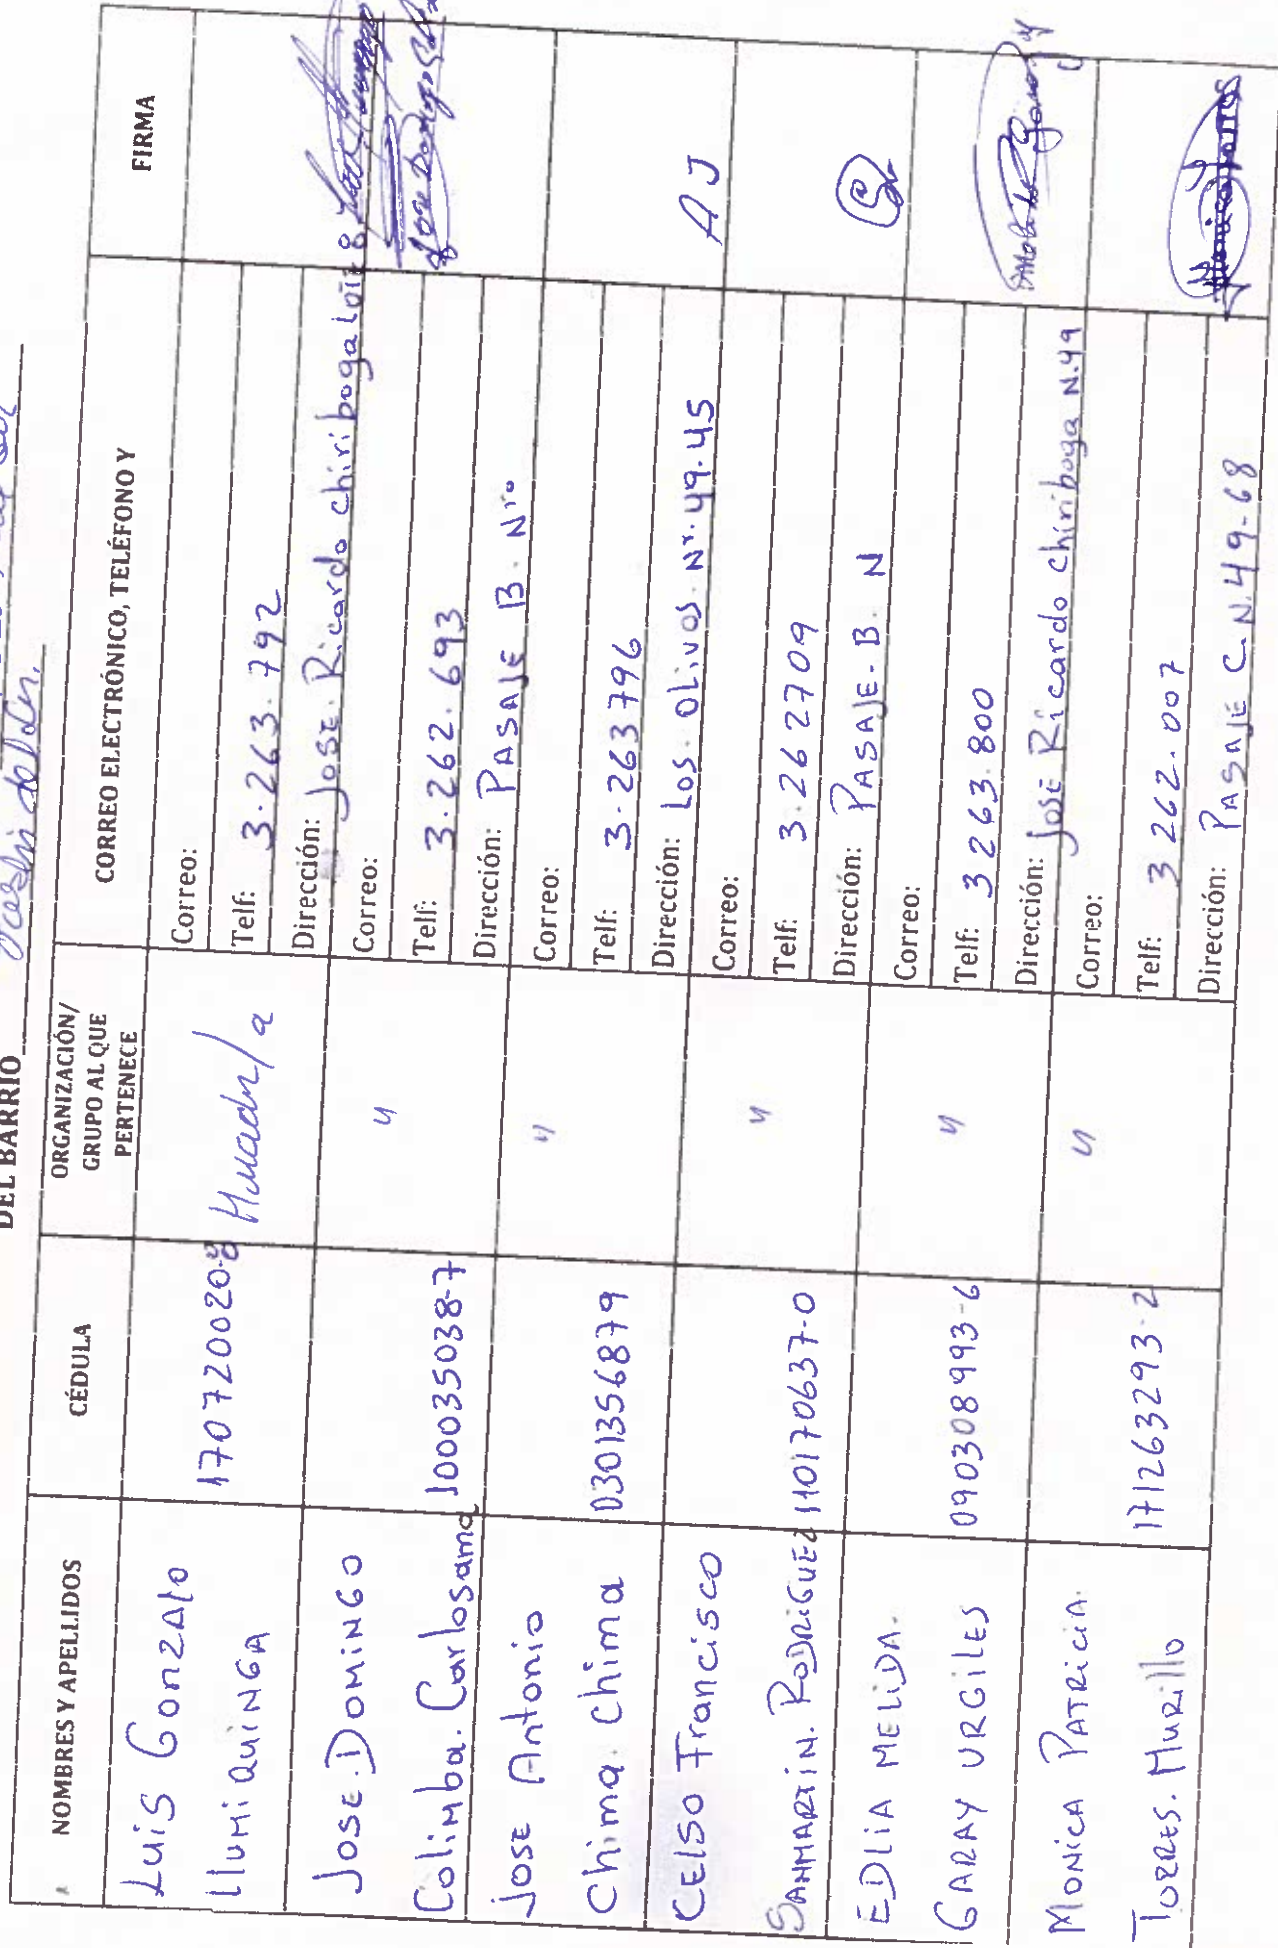 DEL BARRIO
NOMBRES Y APELLIDOS CÉDULA ORGANIZACIÓN/ GRUPO AL QUE PERTENECE CORREO ELECTRÓNICO, TELÉFONO Y FIRMA
Luis Gonzalo
Llumiquinga
170720020-8
Correo:
Telf: 3.263.792
Dirección: Jose. Ricardo chiriboga
Jose. Domingo
Colimba. Carlosama
100035038-7
"
Correo:
Telf: 3.262.693
Dirección: PASAJE B. Nro
Jose Antonio
Chima. Chima
0301356879
"
Correo:
Telf: 3.263796
Dirección: Los. Olivos. Nr. 49.45
AJ
CELSO Francisco
SANMARTIN. RODRIGUEZ
110170637-0
"
Correo:
Telf: 3.262709
Dirección: PASAJE. B. N
EDLIA MELIDA.
GARAY URGILES
090308993-6
"
Correo:
Telf: 3263.800
Dirección: Jose Ricardo chiriboga N.49
MONICA PATRICIA.
TORRES. MURILLO
171263293-2
"
Correo:
Telf: 3 262.007
Dirección: PASAJE C. N. 49-68